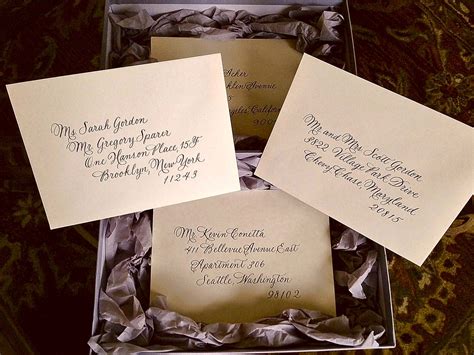 Ms Sarah Gordon
Mr. Gregory Sparer
One Hanson Place, 15F
Brooklyn, New York
11243
Acker
klin Avenue
geles, Califo
900
Mr and Mrs Scott Gordon
3522 Village Park Drive
Chevy Chase, Maryland
20815
Mr Kevin Conetta
411 Bellevue Avenue East
Apartment 306
Seattle, Washington
98102